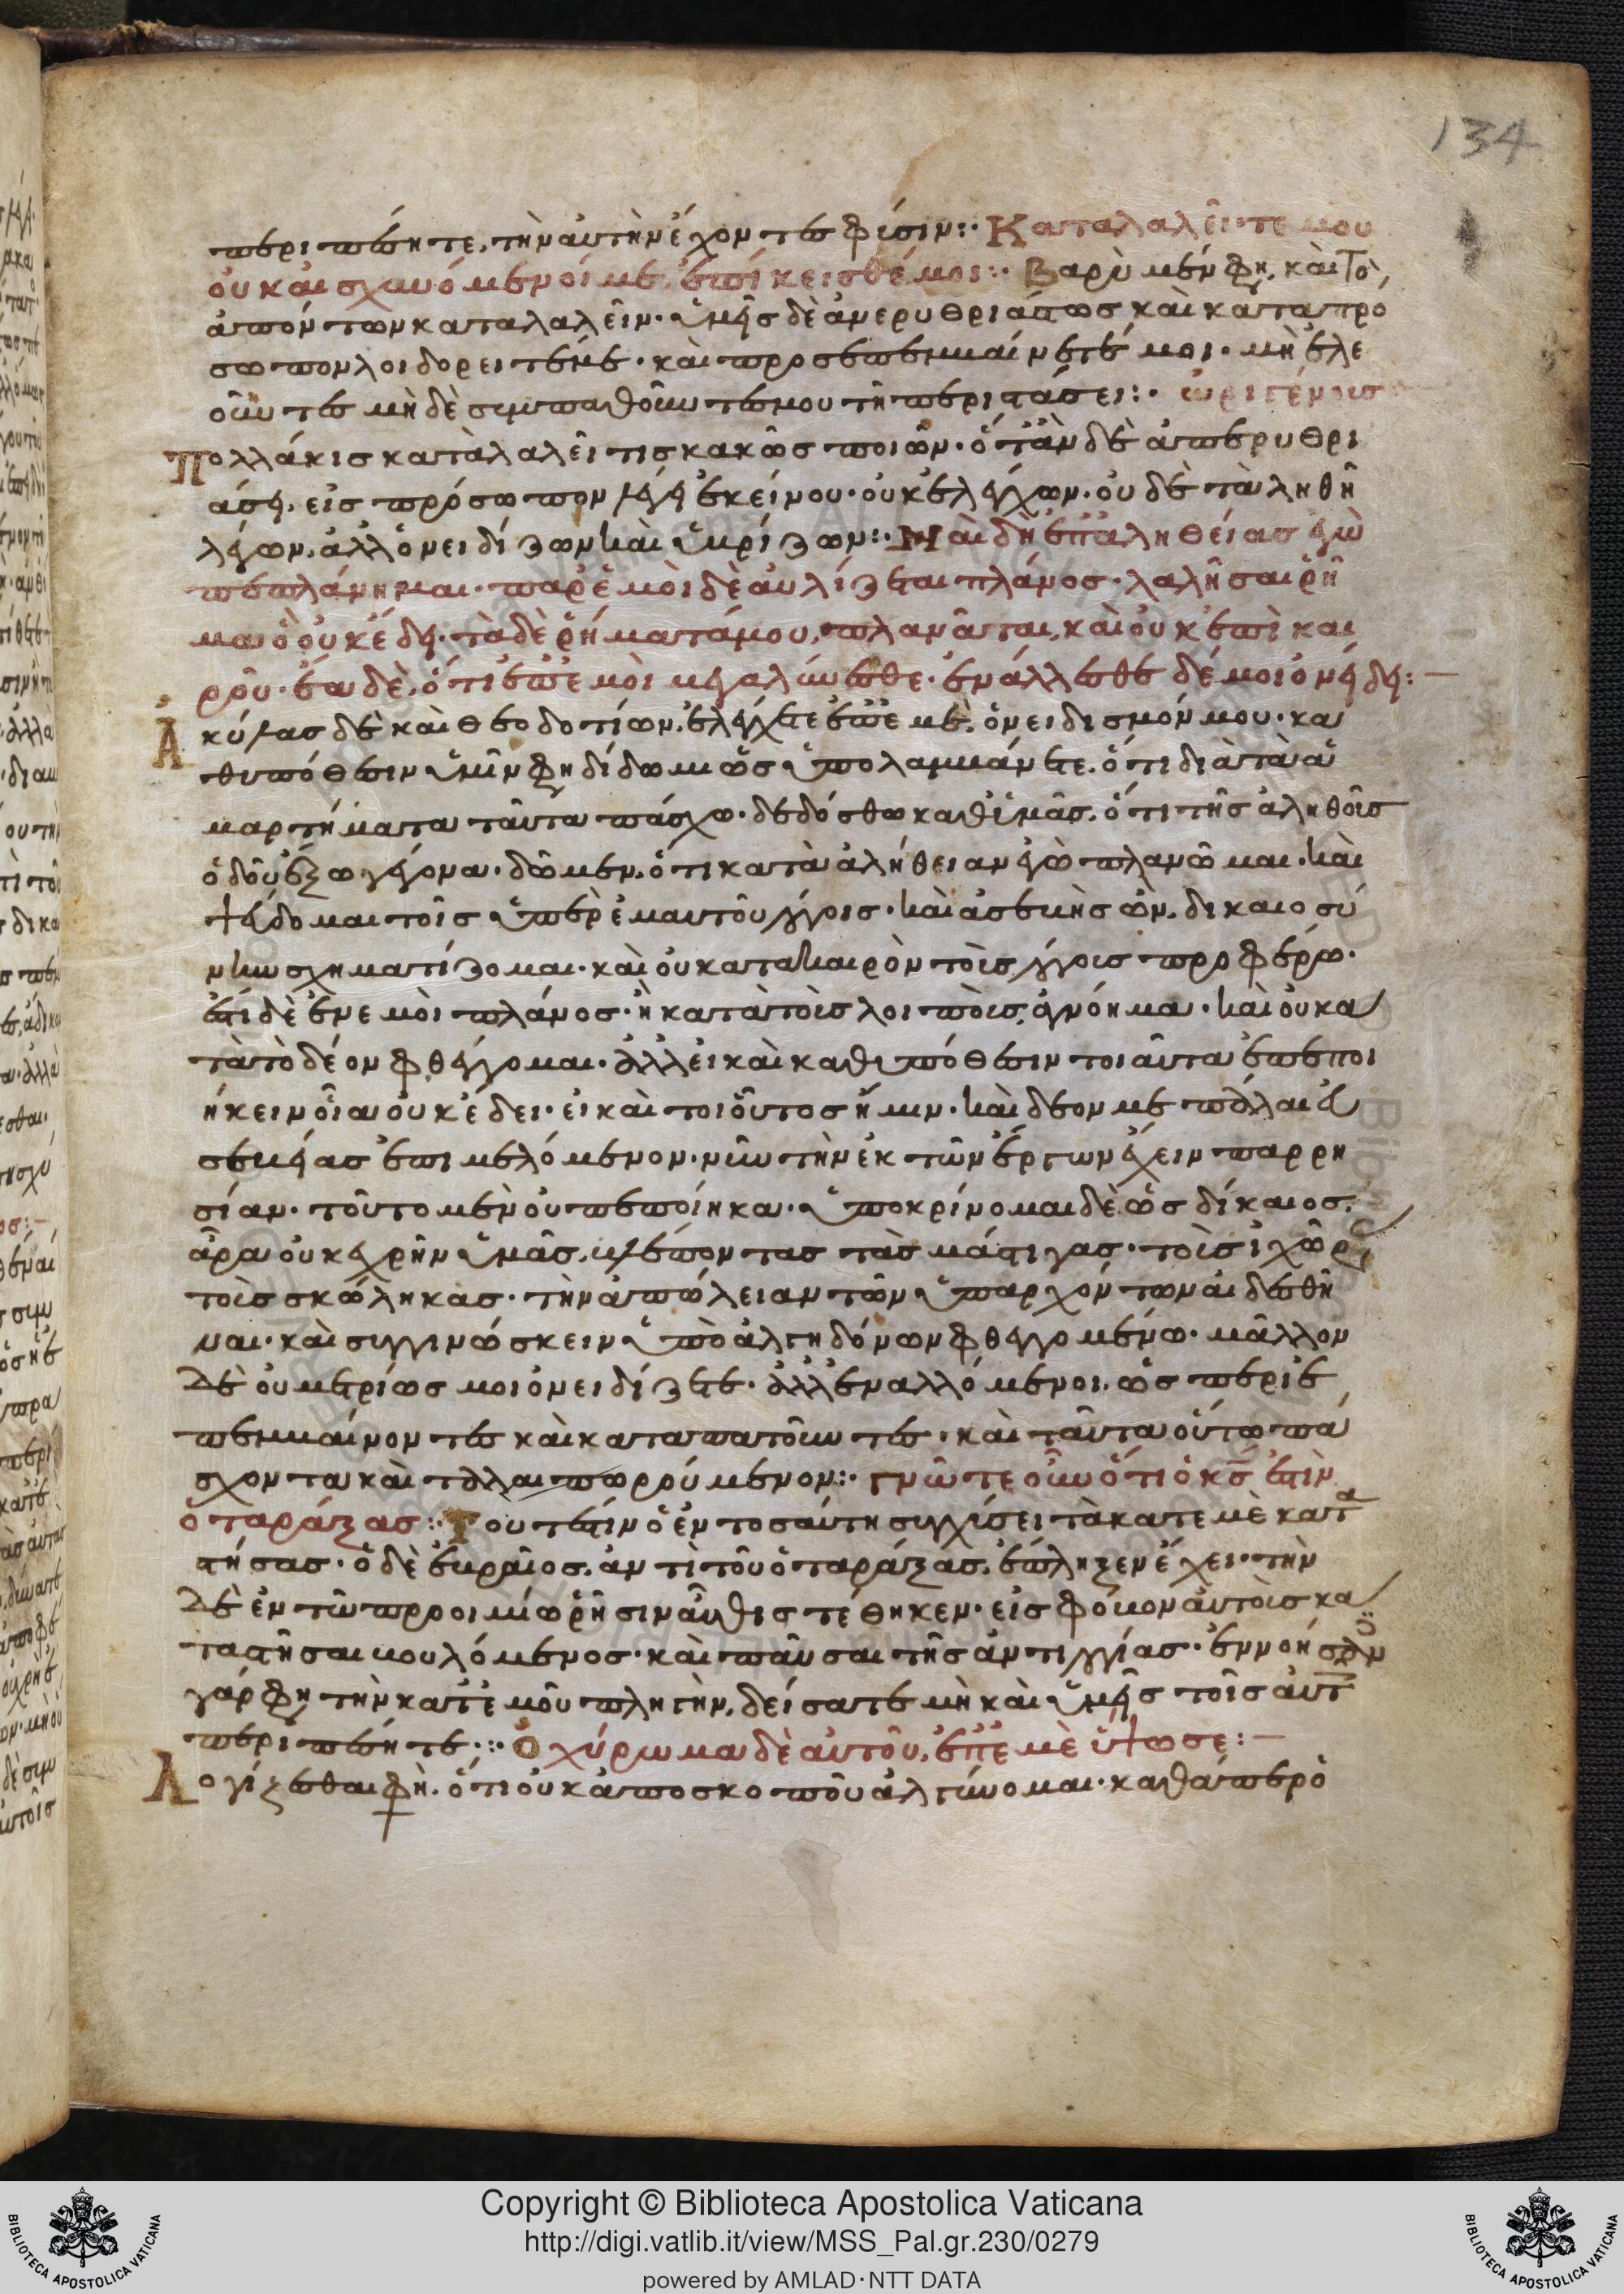 134
περιπέσητε, τὴν αὐτὴν ἔχοντες φύσιν: Καταλαλεῖτε μου
οὐκ αἰσχυνόμενοί με. ἐπίκεισθέ μοι: Βαρὺ μέν φη, καὶ τὸ
ἀπόντων καταλαλεῖν. ὑμεῖς δὲ ἀνερυθριάστως καὶ κατὰ πρό
σωπον λοιδορεῖτέ με. καὶ προσεπεμβαίνετέ μοι. μὴ ἐλε
οῦντες μὴ δὲ συμπαθοῦντες μου τῆ περιστάσει: ὠριγένους
Πολλάκις καταλαλεῖ τις κακῶς ποιῶν. ὅταν δὲ ἀπερυθρι
άση, εἰς πρόσωπον λέγει ἐκείνου. οὐκ ἐλέγχων. οὐδὲ τἀληθῆ
λέγων. ἀλλ' ὀνειδίζων καὶ ὑβρίζων: Ναὶ δὴ ἐπ' ἀληθείας ἐγὼ
πεπλάνημαι. παρ' ἐμοὶ δὲ αὐλίζεται πλάνος. λαλῆσαι ῥῆ
μα ὃ οὐκ ἔδει. τὰ δὲ ῥήματά μου, πλανᾶται, καὶ οὐκ ἐπὶ και
ροῦ. ἔα δὲ, ὅτι ἐπ' ἐμοὶ μεγαλύνεσθε. ἐνάλλεσθε δέ μοι ὀνείδει:
Ἀκύλας δὲ καὶ Θεοδοτίων, ἐλέγχετε ἐπ' ἐμὲ, ὀνειδισμόν μου. κα
θυπόθεσιν ὑμῖν φη δίδωμι ὡς ὑπολαμβάνετε. ὅτι διὰ τὰ ἁ
μαρτήματα ταῦτα πάσχω. δεδόσθω καθ' ὑμᾶς. ὅτι τῆς ἀληθοῦς
ὁδοῦ ἔξω γέγονα. δῶμεν, ὅτι κατὰ ἀλήθειαν ἐγὼ πλανῶμαι. καὶ
ψεύδομαι τοῖς ὑπὲρ ἐμαυτοῦ λόγοις. καὶ ἀσεβὴς ὢν, δικαιοσύ
νην σχηματίζομαι. καὶ οὐ κατὰ καιρὸν τοὺς λόγους προφέρω.
ἔτι δὲ ἐν ἐμοὶ πλάνος. ἢ κατὰ τοὺς λοιποὺς, ἀγνόημα. καὶ οὐ κα
τὰ τὸ δέον φθέγγομαι. ἀλλ' εἰ καὶ καθ' ὑπόθεσιν τοιαῦτα ἐπεποι
ήκειν οἷα οὐκ ἔδει. εἰ καὶ τοιοῦτος ἤμην. καὶ δέον με πάλαι εὐ
σεβείας ἐπιμελόμενον. νῦν τὴν ἐκ τῶν ἔργων ἔχειν παρρη
σίαν. τοῦτο μὲν οὐ πεποίηκα. ὑποκρίνομαι δὲ ὡς δίκαιος.
ἆρα οὐκ ἐχρῆν ὑμᾶς, βλέποντας τὰς μάστιγας. τοὺς ἰχῶρας
τοὺς σκώληκας. τὴν ἀπώλειαν τῶν ὑπαρχόντων αἰδεσθῆ
ναι. καὶ συγγινώσκειν ὑπὸ ἀλγηδόνων φθεγγομένω. μᾶλλον
δὲ οὐ μετρίως μοι ὀνειδίζετε. ἀλλ' ἐναλλόμενοι. ὡς περιε
πεμβαίνοντες καὶ καταπατοῦντες. καὶ ταῦτα οὕτω πά
σχοντα καὶ ταλαιπωρούμενον: γνῶτε οὖν ὅτι ὁ κς ἐστὶν
ὁ ταράξας: Τουτέστιν ὁ ἐν τοσαύτη συγχύσει τὰ κατ' ἐμὲ κατα
στήσας. ὁ δὲ ἑβραῖος, ἀντὶ τοῦ ὁ ταράξας, ἔπληξεν ἔχει. τὴν
δὲ ἐν τῶ προοιμίω ῥῆσιν αὖθις τέθηκεν. εἰς φόβον αὐτοὺς κα
ταστῆσαι βουλόμενος. καὶ παῦσαι τῆς ἀντιλογίας. ἐννοήσατε
γάρ φη τὴν κατ' ἐμοῦ πληγὴν, δείσατε μὴ καὶ ὑμεῖς τοῖς αὐτ
περιπέσητε: Ὀχύρωμα δὲ αὐτοῦ, ἐπ' ἐμὲ ὕψωσε:
Λογίζεσθαι φὴ, ὅτι οὐκ ἀπὸ σκοποῦ ἀλγύνομαι. καθάπερ ὀ
Copyright © Biblioteca Apostolica Vaticana
http://digi.vatlib.it/view/MSS_Pal.gr.230/0279
powered by AMLAD·NTT DATA
BIBLIOTECA APOSTOLICA VATICANA
BIBLIOTECA APOSTOLICA VATICANA